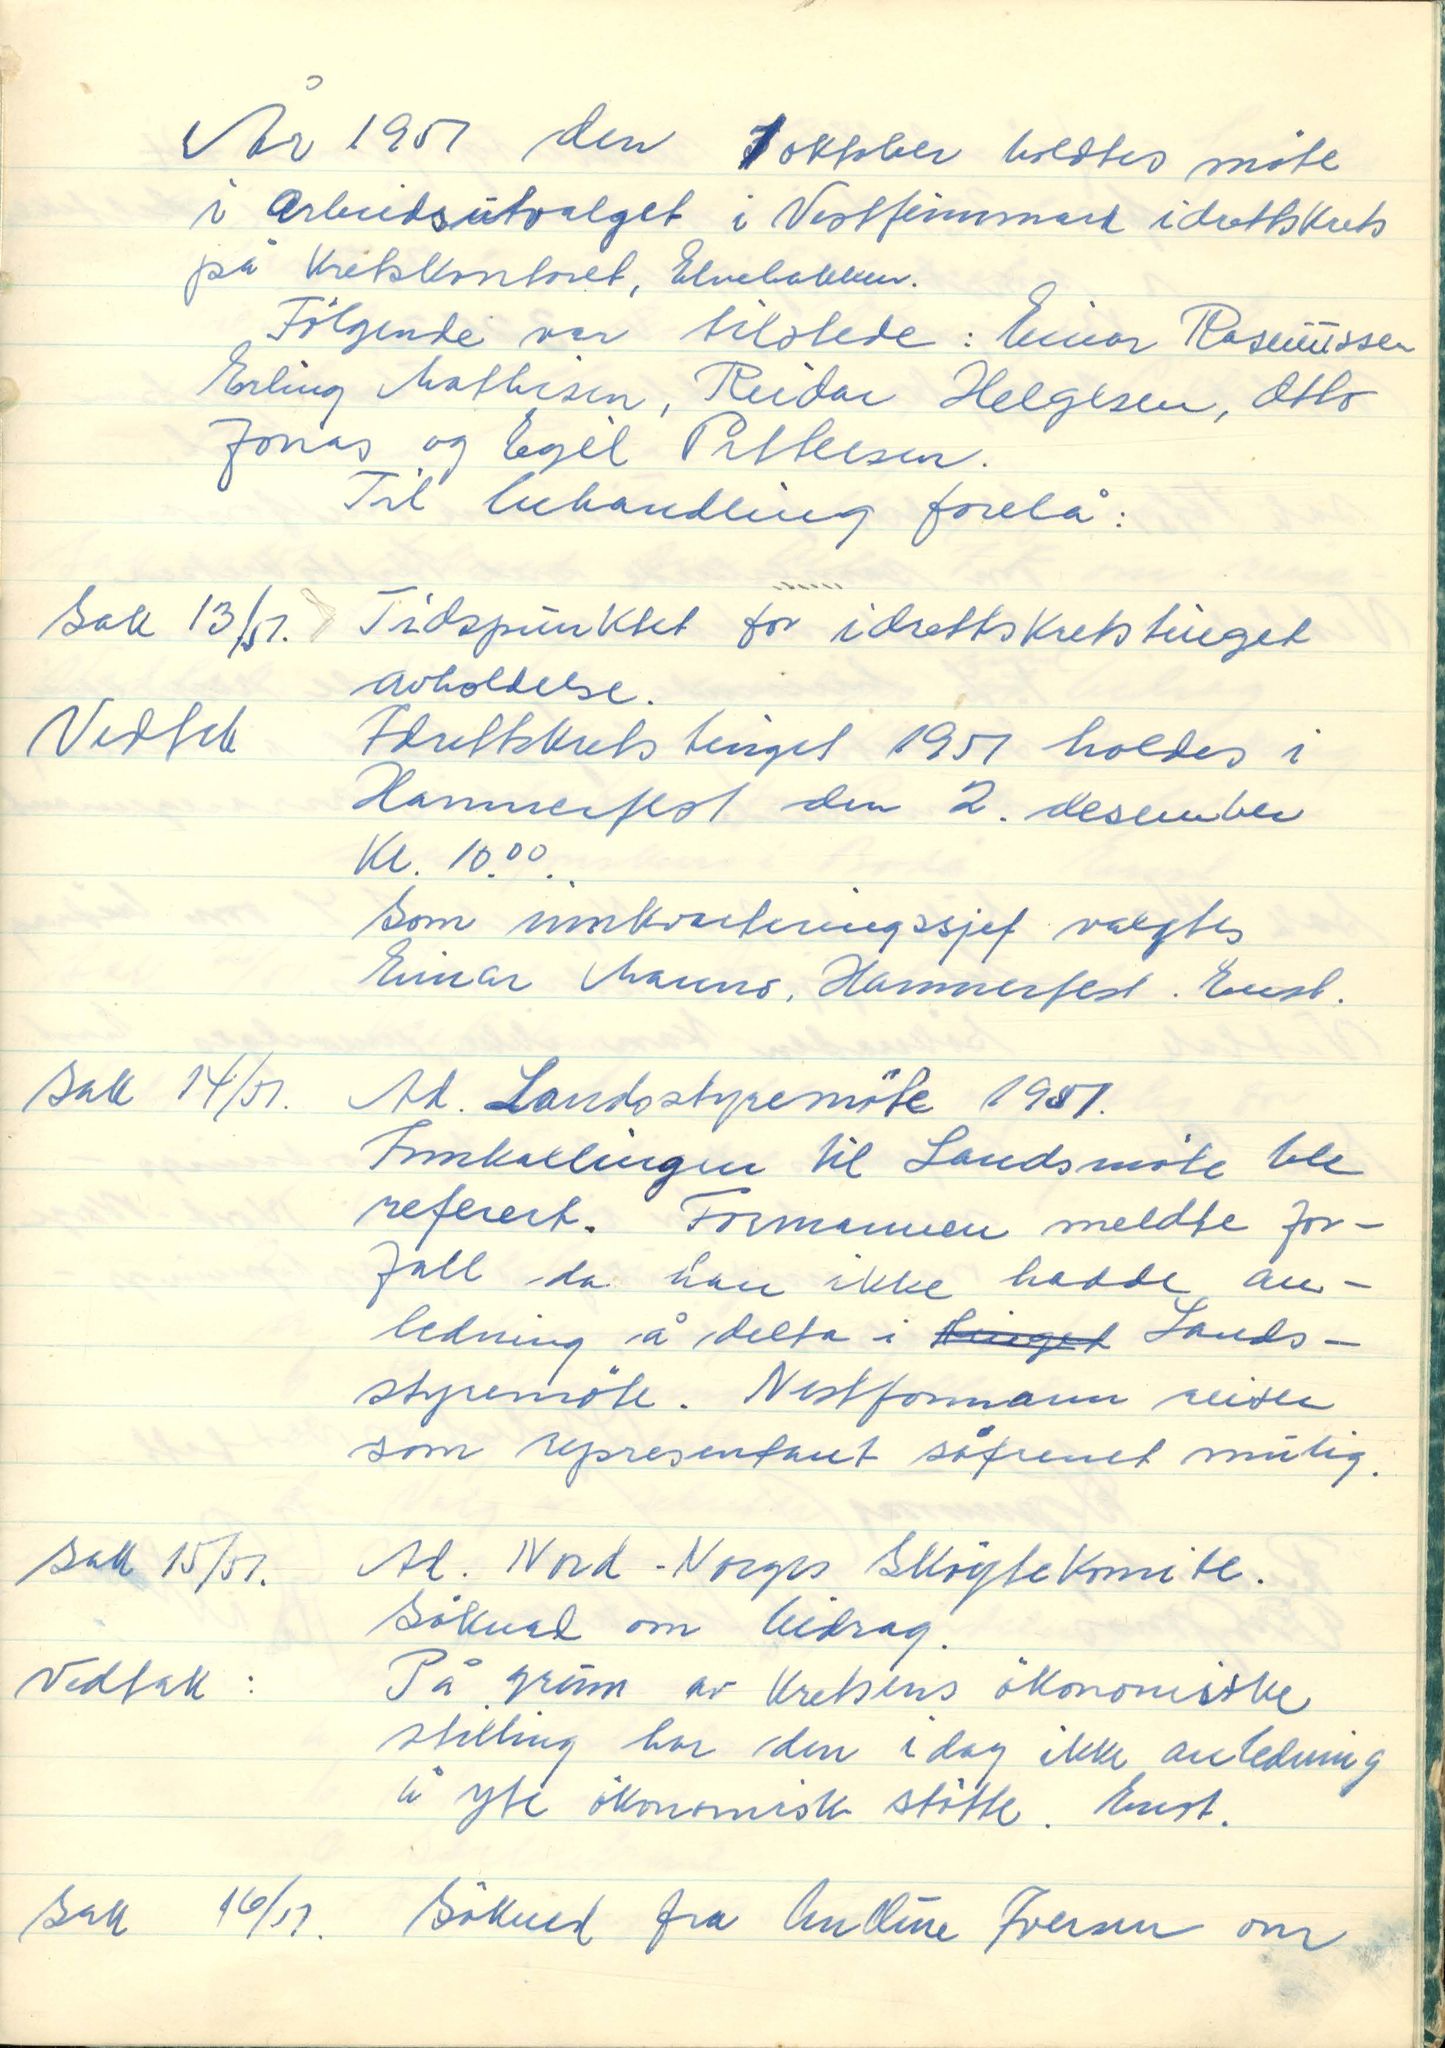 År 1951 den 1 oktober holdtes möte
i Arbeidsutvalget i Vestfinnmark idrettskrets
på Kretskontoret, Elvebakken.
Fölgende var tilstede: Einar Rasmussen
Erling Mathisen, Reidar Helgesen, Otto
Jonas og Egil Pettersen.
Til behandling forelå:
Sak 13/51. Tidspunktet for idrettskretstinget
avholdelse.
Vedtak Idrettskretstinget 1951 holdes i
Hammerfest den 2. desember
Kl. 10.00.
Som innkvarteringssjef valgtes
Einar Mauno, Hammerfest. Enst.
Sak 14/51. Ad. Landsstyremöte 1951.
Innkallingen til Landsmöte ble
referert. Formannen meldte for-
fall da han ikke hadde an-
ledning å delta i tinget Lands-
styremöte. Nestformann reiser
som representant såfremt mulig.
Sak 15/51. Ad. Nord-Norges Sköytekomite.
Söknad om bidrag.
Vedtak: På grunn av Kretsens ökonomiske
stilling har den idag ikke anledning
å yte ökonomisk stötte. Enst.
Sak 16/51. Söknad fra Iversen om